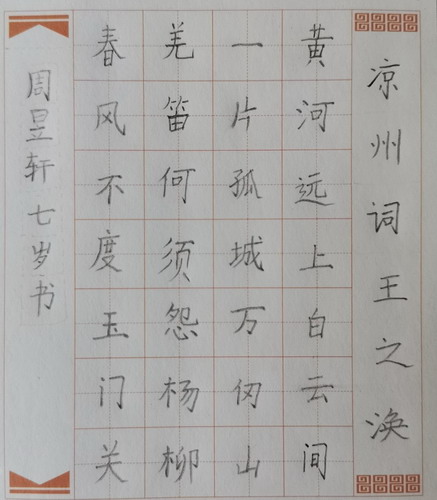 凉州词王之涣
黄河远上白云间
一片孤城万仞山
羌笛何须怨杨柳
春风不度玉门关
周昱轩七岁书